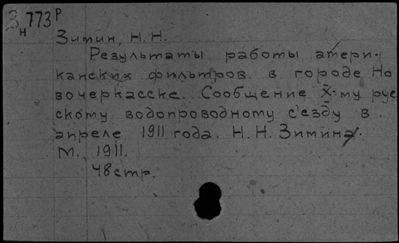 З 773 Р
Н
Зимин, Н. Н.
Результаты работы амери-
канских фильтров в городе Но
вочеркасске. Сообщение X-му рус
скому водопроводному с'езду в
апреле 1911 года. Н. Н. Зимина.
М., 1911.
48 стр.